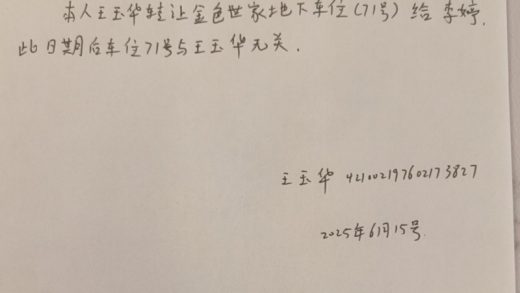 本人王玉华转让金色世家地下车位(71号)给 李婷,
此日期后车位71号与王玉华无关.
王玉华 421002197602173827
2025年6月15号.